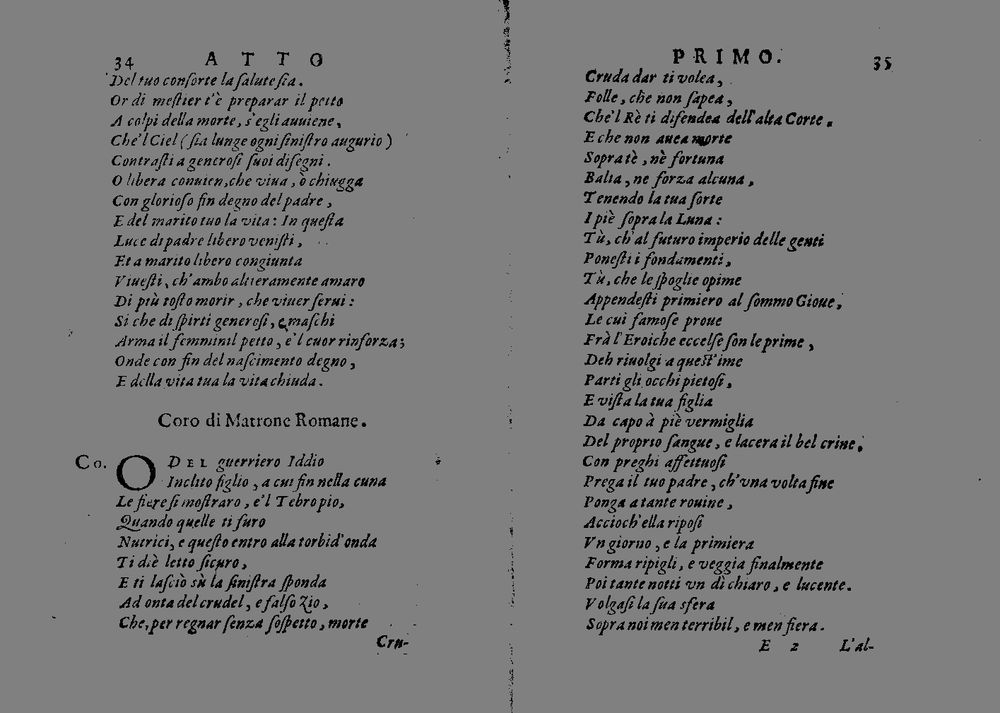 34 ATTO
Del tuo conſorte la ſalute ſia.
Or di meſtier t'è preparar il petto
A colpi della morte, s'egli auuiene,
Che'l Ciel (ſia lunge ogni ſiniſtro augurio)
Contraſti a generoſi ſuoi diſegni.
O libera conuien, che viua, ò chiugga
Con glorioſo fin degno del padre,
E del marito tuo la vita: In queſta
Luce di padre libero veniſti,
Et a marito libero congiunta
Viueſti, ch'ambo altieramente amaro
Di più toſto morir, che viuer ſerui:
Si che di ſpirti generoſi, e maſchi
Arma il femminil petto, e'l cuor rinforza;
Onde con fin del naſcimento degno,
E della vita tua la vita chiuda.
Coro di Matrone Romane.
Co. O DEL guerriero Iddio
Inclito figlio, a cui fin nella cuna
Le fiere ſi moſtraro, e'l Tebro pio,
Quando quelle ti furo
Nutrici, e queſto entro alla torbid'onda
Ti diè letto ſicuro,
E ti laſciò sù la ſiniſtra ſponda
Ad onta del crudel, e falſo Zio,
Che, per regnar ſenza ſoſpetto, morte
Cru-
PRIMO. 35
Cruda dar ti volea,
Folle, che non ſapea,
Che'l Rè ti difendea dell'alta Corte,
E che non auea morte
Sopra tè, nè fortuna
Balia, ne forza alcuna,
Tenendo la tua ſorte
I piè ſopra la Luna:
Tù, ch'al futuro imperio delle genti
Poneſti i fondamenti,
Tù, che le ſpoglie opime
Appendeſti primiero al ſommo Gioue,
Le cui famoſe proue
Frà l'Eroiche eccelſe ſon le prime,
Deh riuolgi a queſt'ime
Parti gli occhi pietoſi,
E viſta la tua figlia
Da capo à piè vermiglia
Del proprio ſangue, e lacera il bel crine,
Con preghi affettuoſi
Prega il tuo padre, ch'vna volta fine
Ponga a tante rouine,
Accioch'ella ripoſi
Vn giorno, e la primiera
Forma ripigli, e veggia finalmente
Poi tante notti vn dì chiaro, e lucente.
Volgaſi la ſua sfera
Sopra noi men terribil, e men fiera.
E 2 L'al-